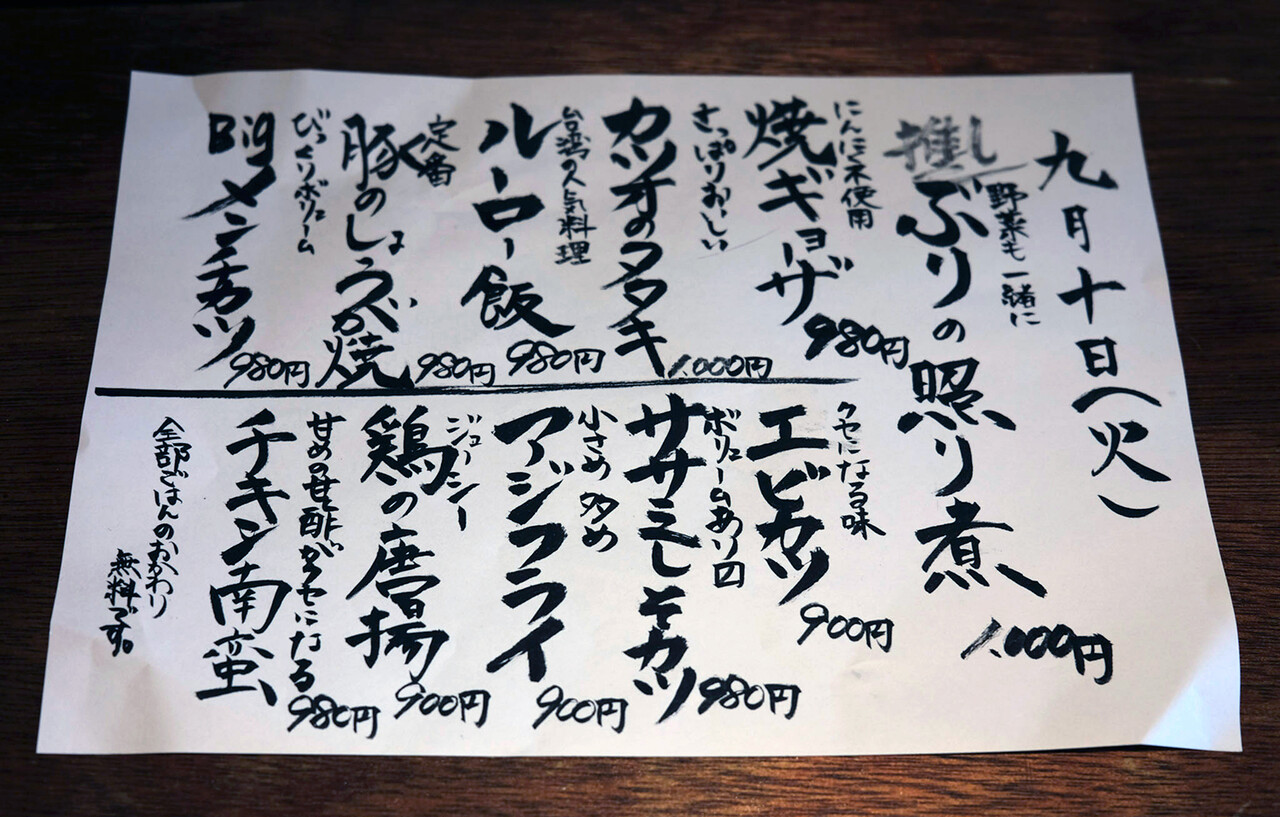 九月十日(火)
推し
野菜も一緒に
ぶりの照り煮
1.000円
にんにく不使用
焼ギョーザ
980円
さっぱりおいしい
カツオのタタキ
1.000円
台湾の人気料理
ルーロー飯
980円
定番
豚のしょうが焼
980円
びっくりボリューム
Bigメンチカツ
980円
クセになる味
エビカツ
900円
ボリュームあり
ササミしそカツ
980円
小さめ 多め
アジフライ
900円
ジューシー
鶏の唐揚
900円
甘めの甘酢がクセになる
チキン南蛮
980円
全部ごはんのおかわり
無料です。